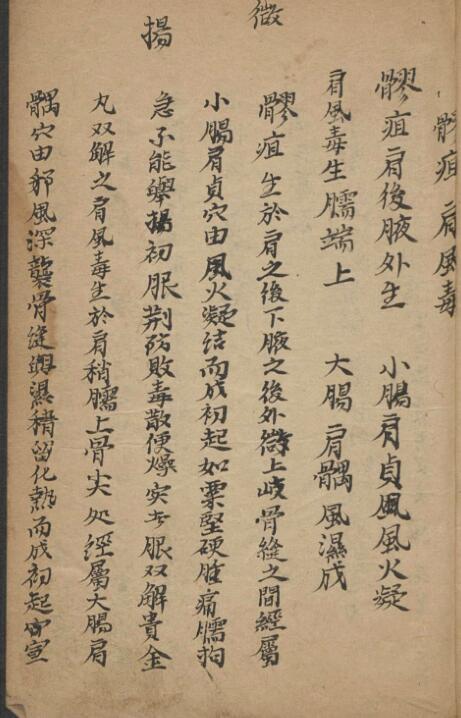 髎疽 肩風毒
髎疽肩後腋外生 小腸肩貞風火凝
肩風毒生臑端上 大腸肩髃風濕成
髎疽生於肩之後下腋之後外微上岐骨縫之間經屬
小腸肩貞穴由風火凝結而成初起如粟堅硬腫痛臑拘
急不能舉揚初服荆防敗毒散便燥实者服双解貴金
丸双解之肩風毒生於肩稍臑上骨尖处經屬大腸肩
髃穴由邪風深襲骨縫與濕稽留化熱而成初起宜宣
微
揚